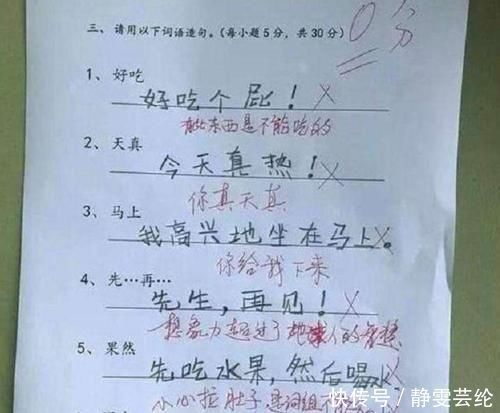 三、请用以下词语造句。(每小题5分，共30分)
0分
1、好吃
好吃个屁！
有些东西是不能吃的
2、天真
今天真热！
你真天真
3、马上
我高兴地坐在马上。
你给我下来
4、先…再…
先生，再见！
想象力超过了地球人的
5、果然
先吃水果，然后喝水
小心拉肚子，是词组
快传号 / 静雯芸纶